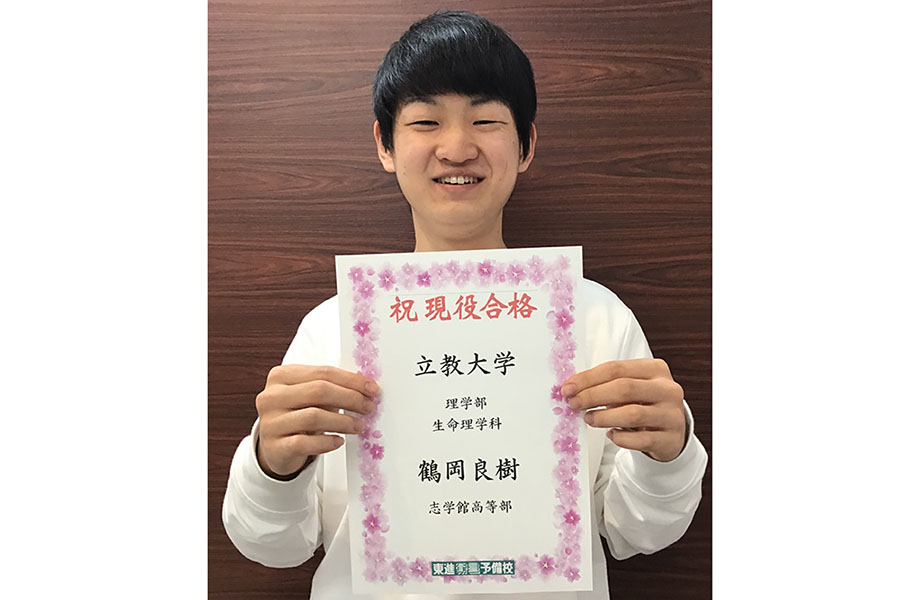 祝 現役合格
立教大学
理学部
生命理学科
鶴岡良樹
志学館高等部
東進衛星予備校